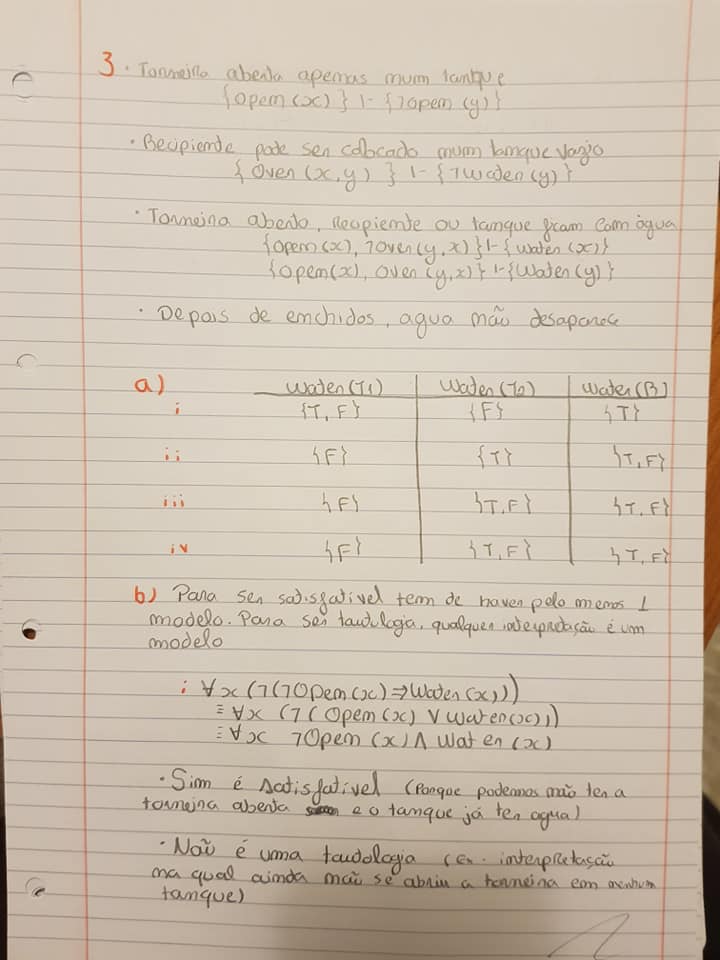 3. Torneira aberta apenas num tanque
{Open (x) } |- {¬Open (y)}
· Recipiente pode ser colocado num tanque vazio
{ Over (x, y) } |- {¬Water (y)}
· Torneira aberto, Recipiente ou tanque ficam com água
{Open (x), ¬Over (y, x)} |- {Water (x)}
{Open(x), Over (y, x)} |- {Water (y)}
· Depois de enchidos, agua não desaparece
a) Water(T1) Water(T2) Water(B)
i {T, F} {F} {T}
ii {F} {T} {T, F}
iii {F} {T, F} {T, F}
iv {F} {T, F} {T, F}
b) Para ser satisfatível tem de haver pelo menos 1
modelo. Para ser tautologia, qualquer interpretação é um
modelo
i ∀x (¬(¬Open(x) ⇒ Water(x)))
≡ ∀x (¬(Open(x) ∨ Water(x)))
≡ ∀x ¬Open (x) ∧ Water (x)
· Sim é satisfatível (Porque podemos não ter a
torneira aberta e o tanque já ter agua)
· Não é uma tautologia (Ex. interpretação
na qual ainda não se abriu a torneira em nenhum
tanque)